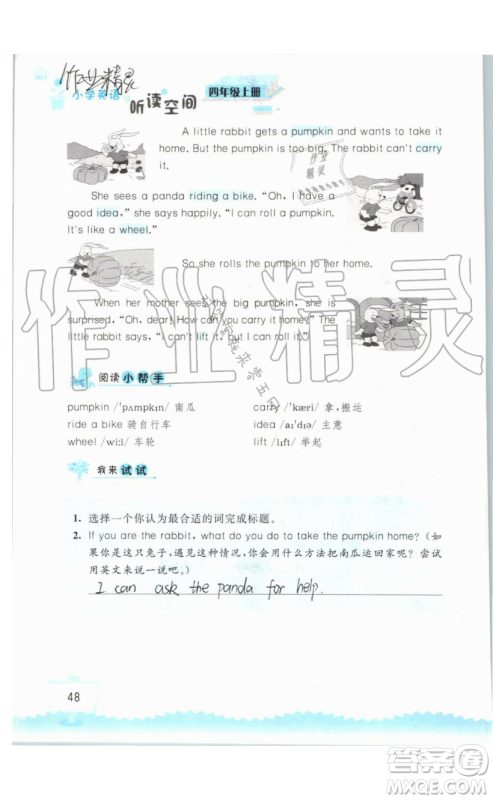 作业精灵
小学英语
听读空间 四年级上册
A little rabbit gets a pumpkin and wants to take it
home. But the pumpkin is too big. The rabbit can't carry
it.
She sees a panda riding a bike. “Oh, I have a
good idea,” she says happily. “I can roll a pumpkin.
It's like a wheel.”
So she rolls the pumpkin home.
When her mother sees the big pumpkin, she is
surprised, “Oh, dear! How can you carry it home?” The
little rabbit says, “I can't lift it, but I can roll it.”
作业精灵
阅读小帮手
pumpkin /ˈpʌmpkɪn/ 南瓜
carry /ˈkæri/ 拿，搬运
ride a bike 骑自行车
idea /aɪˈdɪə/ 主意
wheel /wiːl/ 车轮
lift /lɪft/ 举起
我来试试
1. 选择一个你认为最合适的词完成标题。
2. If you are the rabbit, what do you do to take the pumpkin home?（如
果你是这只兔子，遇见这种情况，你会用什么方法把南瓜运回家？尝试
用英文来说一说吧。）
I can ask the panda for help.
48
答案圈
MXQE.COM